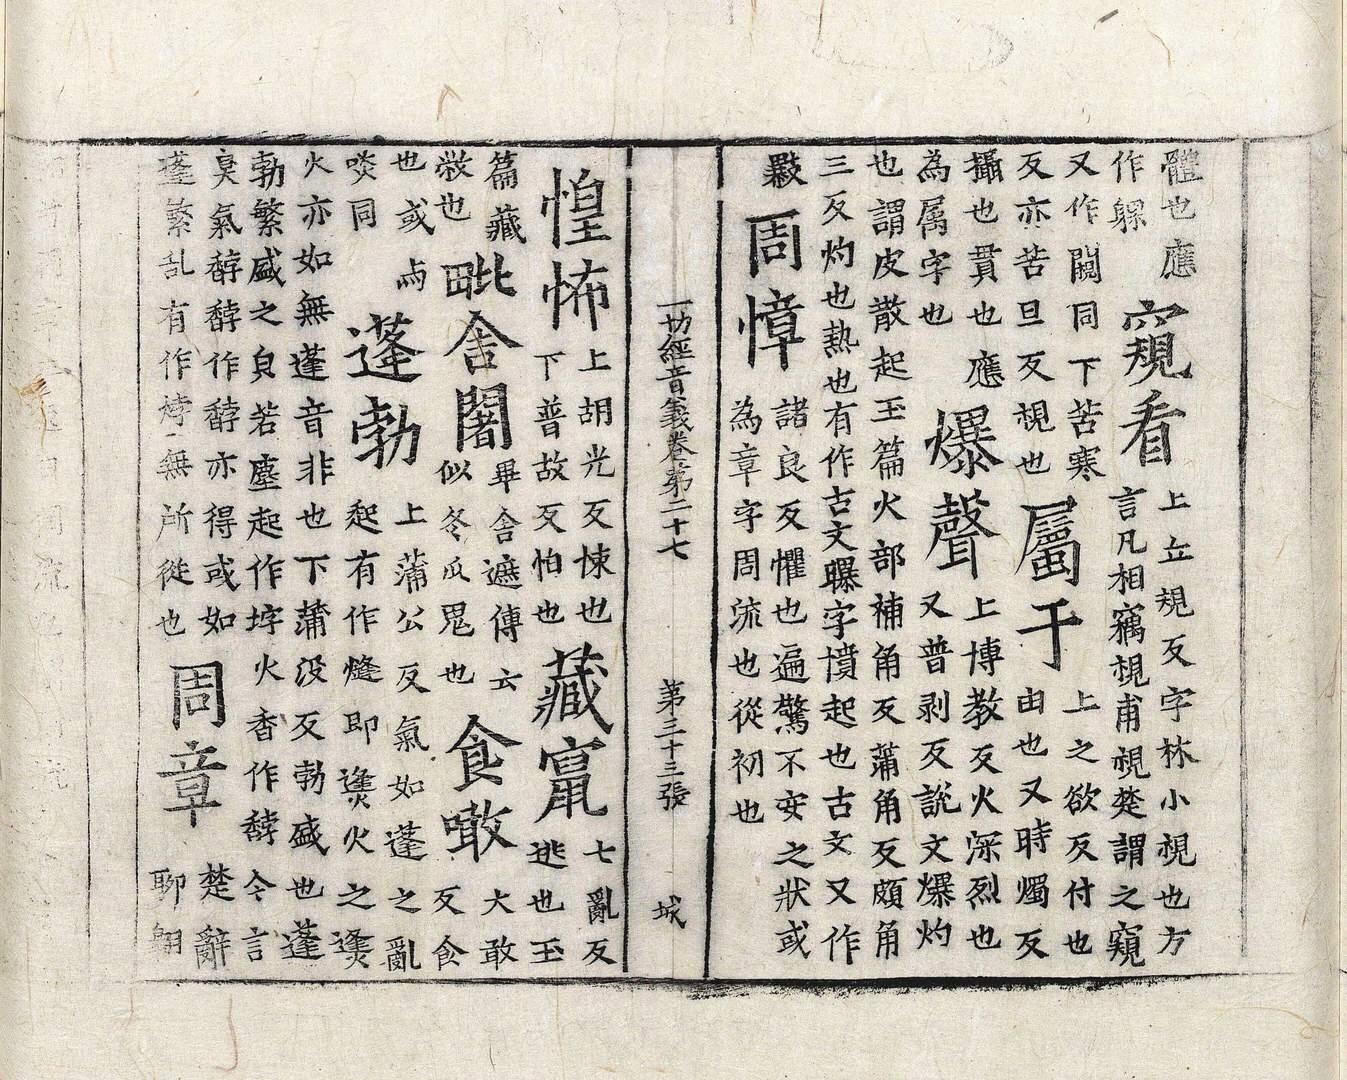 體也應
作躶
窺看
上丘規反字林小視也方
言凡相竊視甫視楚謂之窺
又作闚同下苦寒
反亦苦旦反視也
屬于
上之欲反付也
由也又時燭反
攝也貫也應
為属字也
爆聲
上博教反火深烈也
又普剥反說文爆灼
也謂皮散起玉篇火部補角反蒲角反頗角
三反灼也熱也有作古文曝字憤起也古文又作
周慞
諸良反懼也遍驚不安之狀或
為章字周流也從初也
一切經音義卷第二十七 第三十三張 城
惶怖
上胡光反悚也
下普故反怕也
藏竄
七亂反
逃也玉
篇藏
也
毗舍闍
畢舍遮傳云
似冬瓜鬼也
食噉
大敢
反食
也或
啖同
蓬勃
上蒲公反氣如蓬之亂
起有作熢即熢火之熢
火亦如無蓬音非也下蒲沒反勃盛也蓬
勃繁盛之皃若塵起作埻火香作馞今言
臭氣馞馞作馞亦得或如
蓬繁乱有作無所從也
周章
楚辭
聊翱